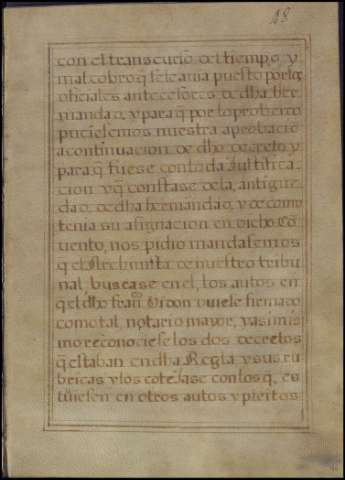 48
con el transcurso del tiempo, y
mal cobro q̃ se le avia puesto por los
oficiales antecesores de dha her-
manda d, y para q̃ por lo proveido
pusiesemos nuestra aprobacio
a continuacion de dho decreto y
para q̃ fuese con toda Justifica-
cion y q̃ constase de la, antigue-
da d, de dha hermanda d, y de como
tenia su asignacion en dicho Cõ-
vento, nos pidio mandasemos
q̃ el Archivista de nuestro tribu-
nal, buscase en el, los autos en
q̃ el dho fran.co Vidon uviese firmado
como tal, notario mayor, y asi mis-
mo reconociese los dos decretos
q̃ estaban en dha Regla y sus ru-
bricas y los cotejase con los q̃, es-
tuviesen en otros autos y pleitos